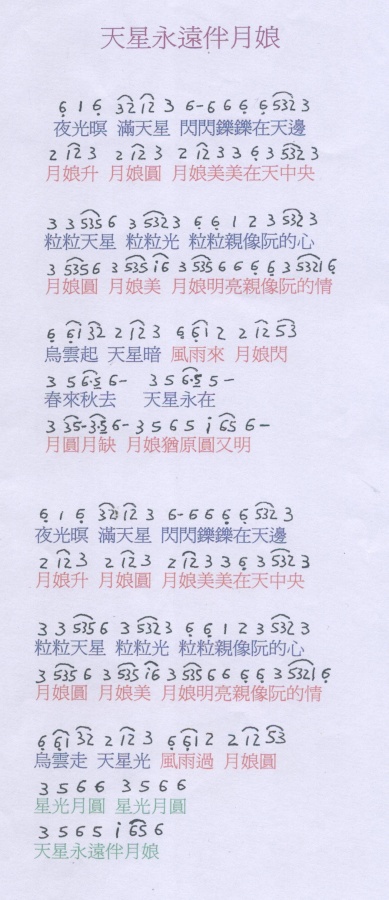 天星永遠伴月娘
6 1 6 32 12 3 6- 6 6 6 6 532 3
夜光暝 滿天星 閃閃鑠鑠在天邊
2 12 3 2 12 3 2 12 3 3 6 3 532 3
月娘升 月娘圓 月娘美美在天中央
3 3 535 6 3 532 3 6 6 1 2 3 532 3
粒粒天星 粒粒光 粒粒親像阮的心
3 535 6 3 535 i6 3 535 6 6 6 6 3 5321 6
月娘圓 月娘美 月娘明亮親像阮的情
6 61 32 2 12 3 6 61 2 2 12 53
烏雲起 天星暗 風雨來 月娘閃
3 5 6·5 6- 3 5 6·5 5-
春來秋去 天星永在
3 35-3·5 6- 3 5 6 5 i 65 6-
月圓月缺 月娘猶原圓又明
6 1 6 32 12 3 6- 6 6 6 6 532 3
夜光暝 滿天星 閃閃鑠鑠在天邊
2 12 3 2 12 3 2 12 3 3 6 3 532 3
月娘升 月娘圓 月娘美美在天中央
3 3 535 6 3 532 3 6 6 1 2 3 532 3
粒粒天星 粒粒光 粒粒親像阮的心
3 535 6 3 535 i6 3 535 6 6 6 6 3 5321 6
月娘圓 月娘美 月娘明亮親像阮的情
6 61 32 2 12 3 6 61 2 2 12 53
烏雲走 天星光 風雨過 月娘圓
3 5 6 6 3 5 6 6
星光月圓 星光月圓
3 5 6 5 i 65 6
天星永遠伴月娘